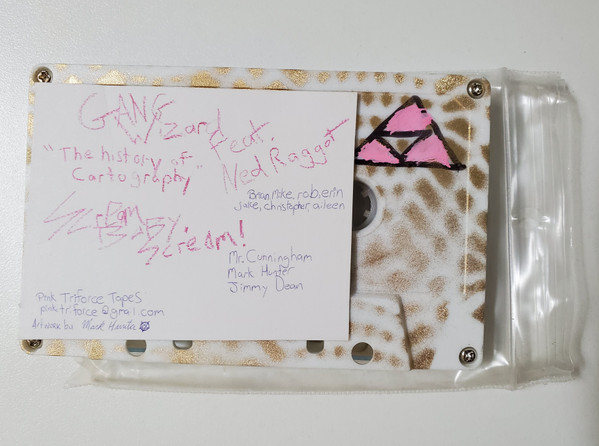 GANG
Wizard
Feat.
Ned Raggot
"The history of
Cartography"
Brian, Mike, rob, erin
Jake, christopher, aileen
Scream
Baby,
Scream!
Mr. Cunningham
Mark Hunter
Jimmy Dean
Pink Triforce Tapes
pink.triforce@gmail.com
Artwork by Mark Hunter